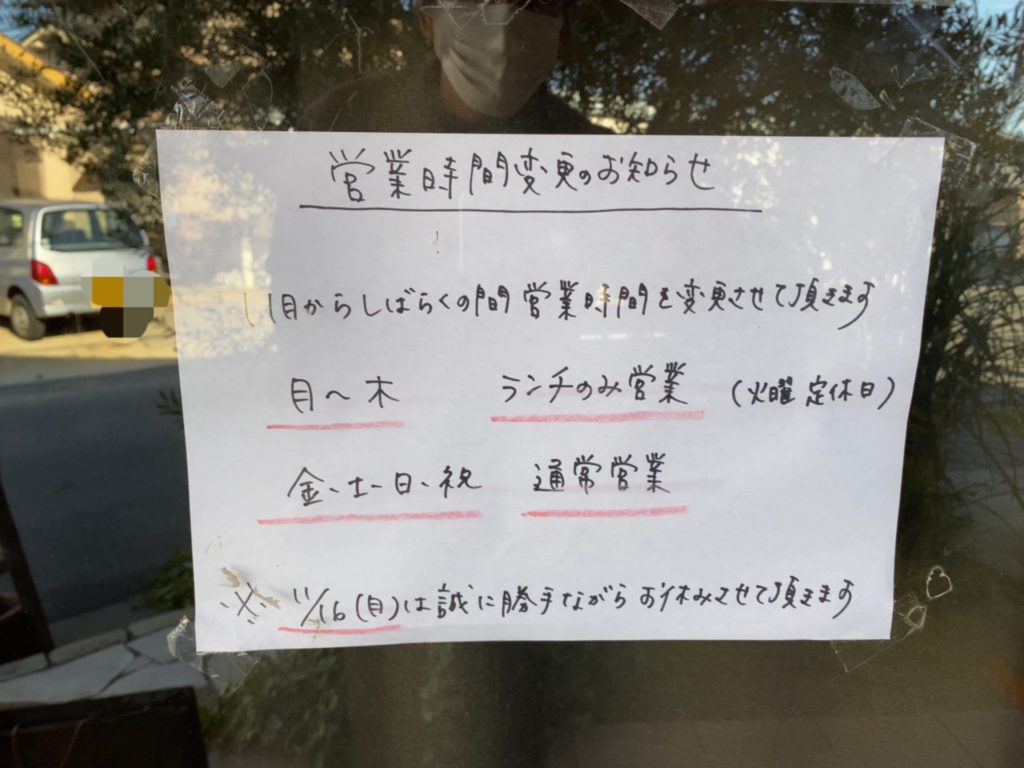 営業時間変更のお知らせ
11月からしばらくの間営業時間を変更させて頂きます
月〜木 ランチのみ営業 (火曜定休日)
金、土、日、祝 通常営業
※ 11/16(月)は誠に勝手ながらお休みさせて頂きます